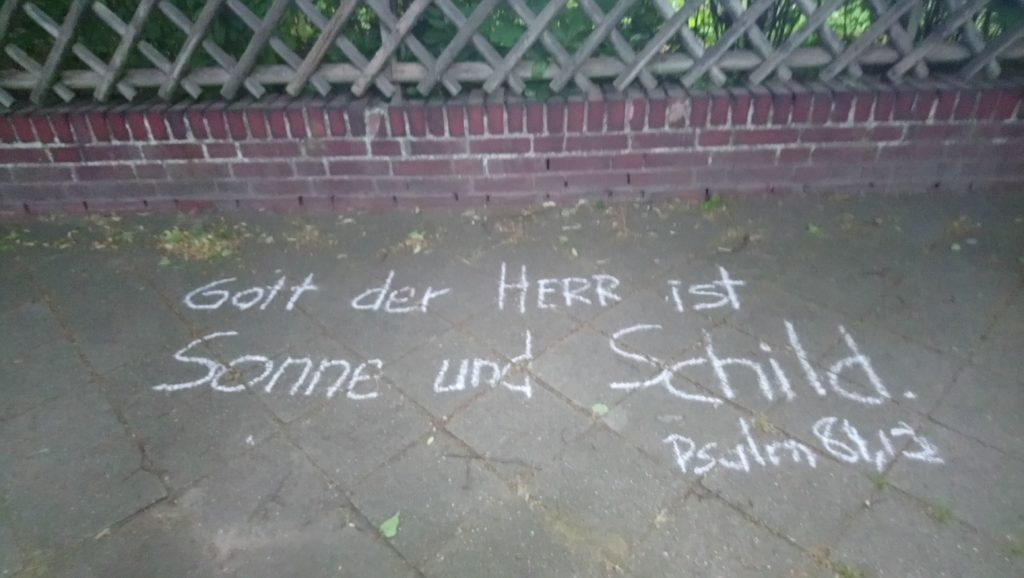 Gott der HERR ist
Sonne und Schild.
Psalm 84,12